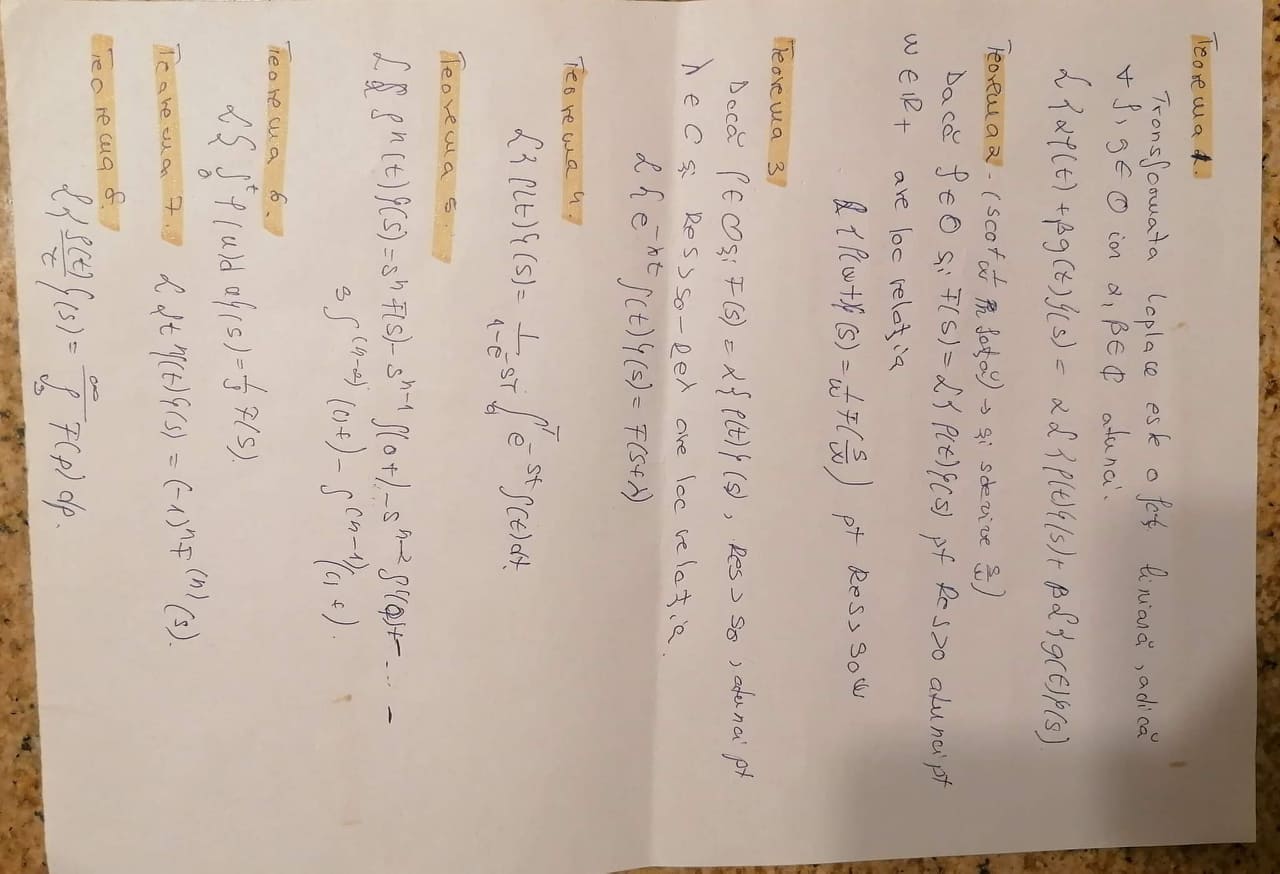 Teorema 1.
Transformata Laplace este o fcț liniară, adică
∀ f, g ∈ O iar α, β ∈ ₵ atunci.
L{αf(t) + βg(t)}(s) = αL{f(t)}(s) + βL{g(t)}(s)
Teorema 2 - (scot 1/w în față) → și s devine s/w)
Dacă f ∈ O și F(s) = L{f(t)}(s) pt Re s>0 atunci pt
w ∈ R+ are loc relația
L{f(wt)}(s) = 1/w F(s/w) pt Re s > s0w
Teorema 3
Dacă f ∈ O și F(s) = L{f(t)}(s), Re s > s0, atunci pt
λ ∈ C și Re s > s0 - Re λ are loc relația.
L{e^-λt f(t)}(s) = F(s+λ)
Teorema 4.
L{f(t)}(s) = 1/(1-e^-sT) ∫_0^T e^-st f(t)dt.
Teorema 5.
L{f^n(t)}(s) = s^n F(s) - s^n-1 f(0+) - s^n-2 f'(0)+ ... -
s f^(n-2) (0+) - f^(n-1) (0+).
Teorema 6.
L{∫_0^t f(u)d u}(s) = 1/s F(s).
Teorema 7. L{t^n f(t)}(s) = (-1)^n F^(n) (s).
Teorema 8.
L{f(t)/t}(s) = ∫_s^∞ F(p) dp.